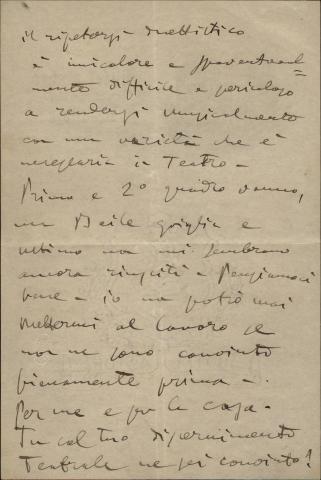 il ripetersi duettistico
è unicolore e spaventeval=
mente difficile e pericoloso
a rendersi musicalmente
con una varietà che è
necessaria in Teatro -
Primo e 2º quadro vanno,
ma Baile griglia e
ultimo non mi sembrano
ancora riusciti - Pensiamoci
bene - io non potrò mai
mettermi al lavoro se
non ne sono convinto
pienamente prima -
Per me e per la casa -
Tu col tuo discernimento
Teatrale ne sei convinto?